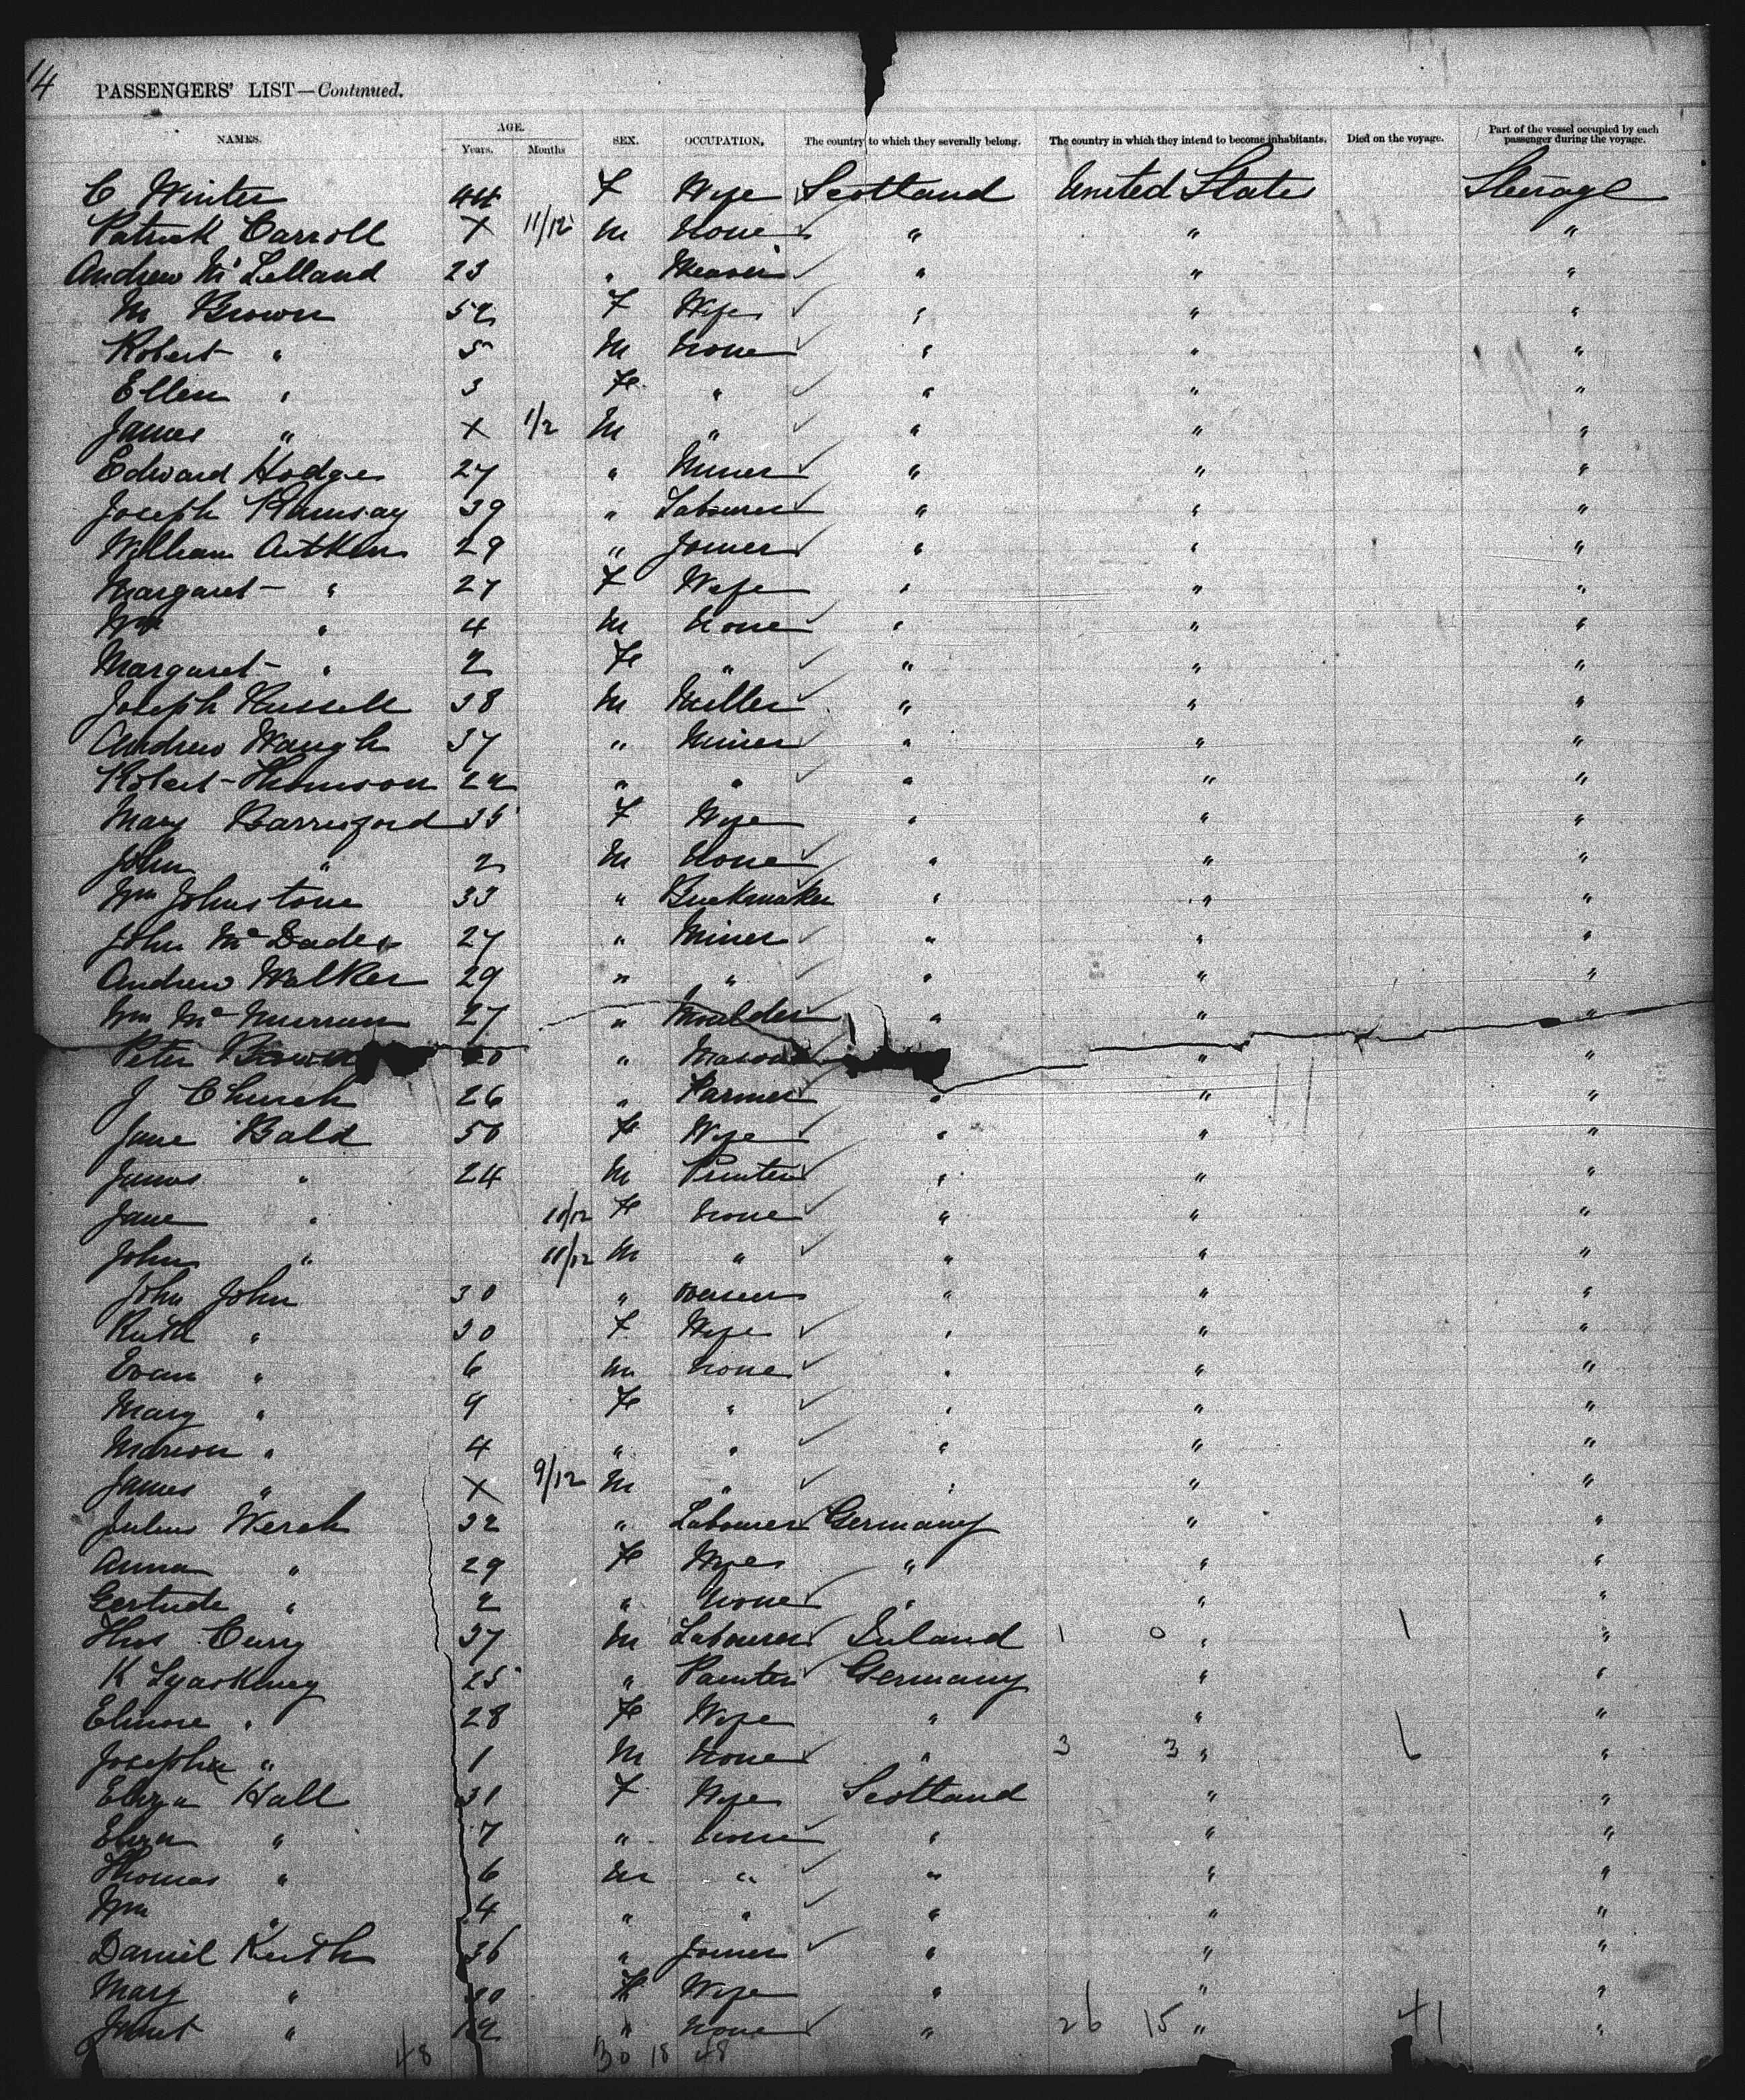 14
PASSENGERS' LIST—Continued.
NAMES. AGE. Years. Months SEX. OCCUPATION. The country to which they severally belong. The country in which they intend to become inhabitants. Died on the voyage. Part of the vessel occupied by each passenger during the voyage.
C Winter 44 F Wife Scotland United States Steerage
Patrick Carroll X 11/12 M None " " "
Andrew McLelland 23 " Weaver " " "
M Brown 52 F Wife " " "
Robert " 5 M None " " "
Ellen " 3 F " " " "
James " X 1/2 M " " " "
Edward Hodges 27 " Miner " " "
Joseph Ramsay 39 " Labourer " " "
William Aitken 29 " Joiner " " "
Margaret " 27 F Wife " " "
Wm " 4 M None " " "
Margaret " 2 F " " " "
Joseph Russell 38 M Miller " " "
Andrew Waugh 37 " Miner " " "
Robert Thomson 22 " " " " "
Mary Barrisford 35 F Wife " " "
John " 2 M None " " "
Wm Johnstone 33 " Brickmaker " " "
John McDade 27 " Miner " " "
Andrew Walker 29 " " " " "
Wm McMurran 27 " Moulder " " "
Peter Brown " Mason " "
J Church 26 " Farmer " " "
Jane Bald 50 F Wife " " "
James " 24 M Printer " " "
Jane " 10/12 F None " " "
John " 11/12 M " " " "
John John 30 " " " "
Ruth " 30 F Wife " " "
Evan " 6 M None " " "
Mary " 9 F " " " "
Marion " 4 " " " " "
James " X 9/12 M " " " "
Julius Wersh 32 " Labourer Germany " "
Anna " 29 F Wife " " "
Gertrude " 2 " None " " "
Thos Curry 37 M Labourer Ireland 1 0 " 1 "
K 25 " Painter Germany " "
Elinore " 28 F Wife " " "
Joseph " 1 M None " 3 3 " 6 "
Eliza Hall 31 F Wife Scotland " "
Eliza " 7 " None " " "
Thomas " 6 M " " " "
Wm " 4 " " " " "
Daniel Keith 36 " Joiner " " "
Mary " 30 F Wife " " "
Janet " " None " 26 15 " 41 "
48 30 18 48